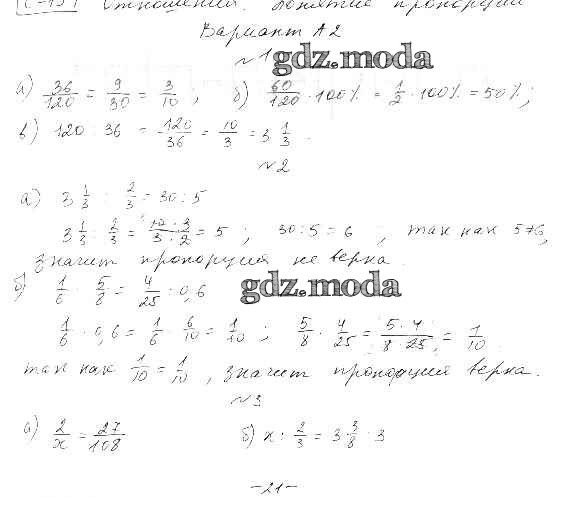 С-15. Отношения. Понятие пропорции
Вариант А2
№1
gdz.moda
а) 36/120 = 9/30 = 3/10 , б) 60/120 · 100% = 1/2 · 100% = 50% ;
в) 120 : 36 = 120/36 = 10/3 = 3 1/3 .
№2
а) 3 1/3 : 2/3 = 30 : 5
3 1/3 : 2/3 = 10 · 3/3 · 2 = 5 ; 30 : 5 = 6 , так как 5≠6,
значит пропорция не верна.
gdz.moda
б) 1/6 : 5/8 = 4/25 : 0,6
1/6 · 0,6 = 1/6 · 6/10 = 1/10 ; 5/8 · 4/25 = 5 · 4/8 · 25 = 1/10
так как 1/10 = 1/10 , значит пропорция верна.
№3
а) 2/x = 27/108 б) x : 2/3 = 3 3/8 : 3
-21-